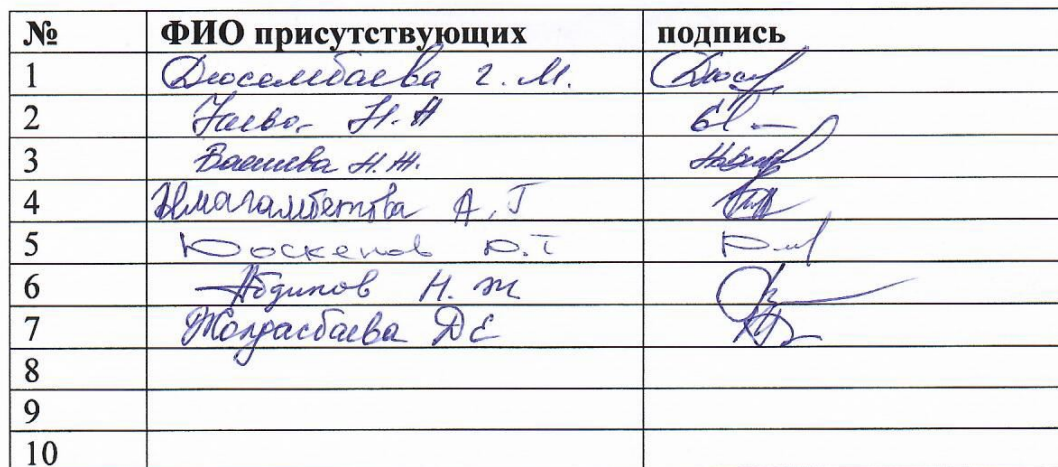 № ФИО присутствующих подпись
1 Дюсембаева Г. М.
2 Н. Н
3 Ваиева Н. Ж.
4 Нмагамбетова А. Г
5 Юскенов Ю. Т
6 Абдипов Н. Ж
7 Жолдасбаева Д Е
8
9
10